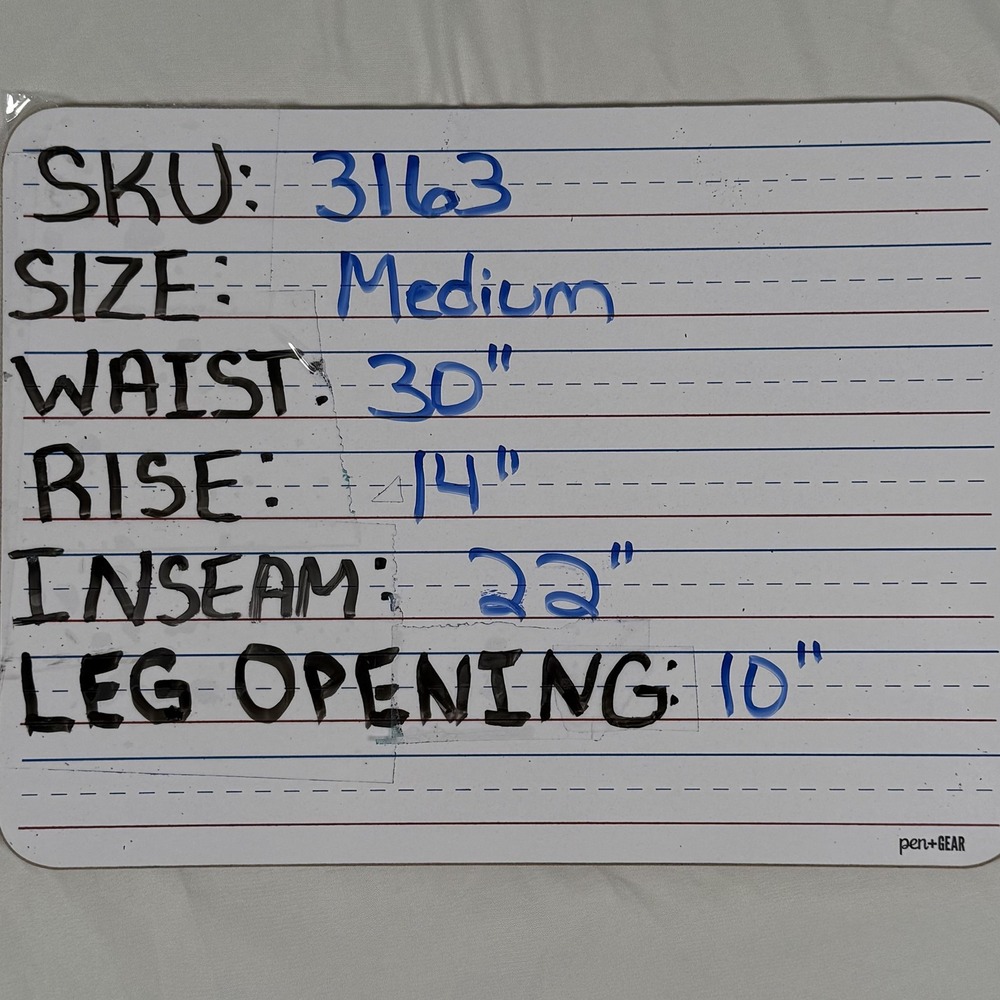 SKU: 3163
SIZE: Medium
WAIST: 30"
RISE: 14"
INSEAM: 22"
LEG OPENING: 10"
pen+GEAR